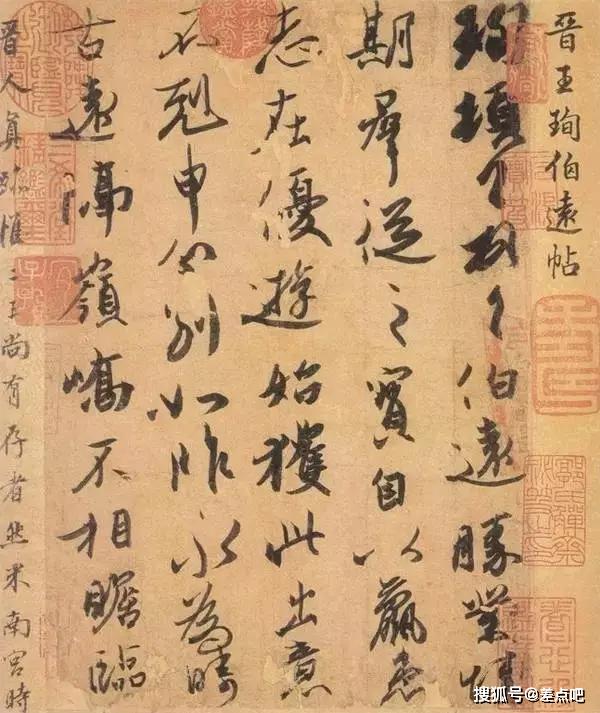 晋王珣伯遠帖
珣頓首頓首伯遠勝業情
期羣從之寳自以羸患
志在優遊始獲此出意
不剋申分别如昨永為疇
古遠隔嶺嶠不相瞻臨
晋人真跡惟二王尚有存者然米南宫時
搜狐号@差点吧